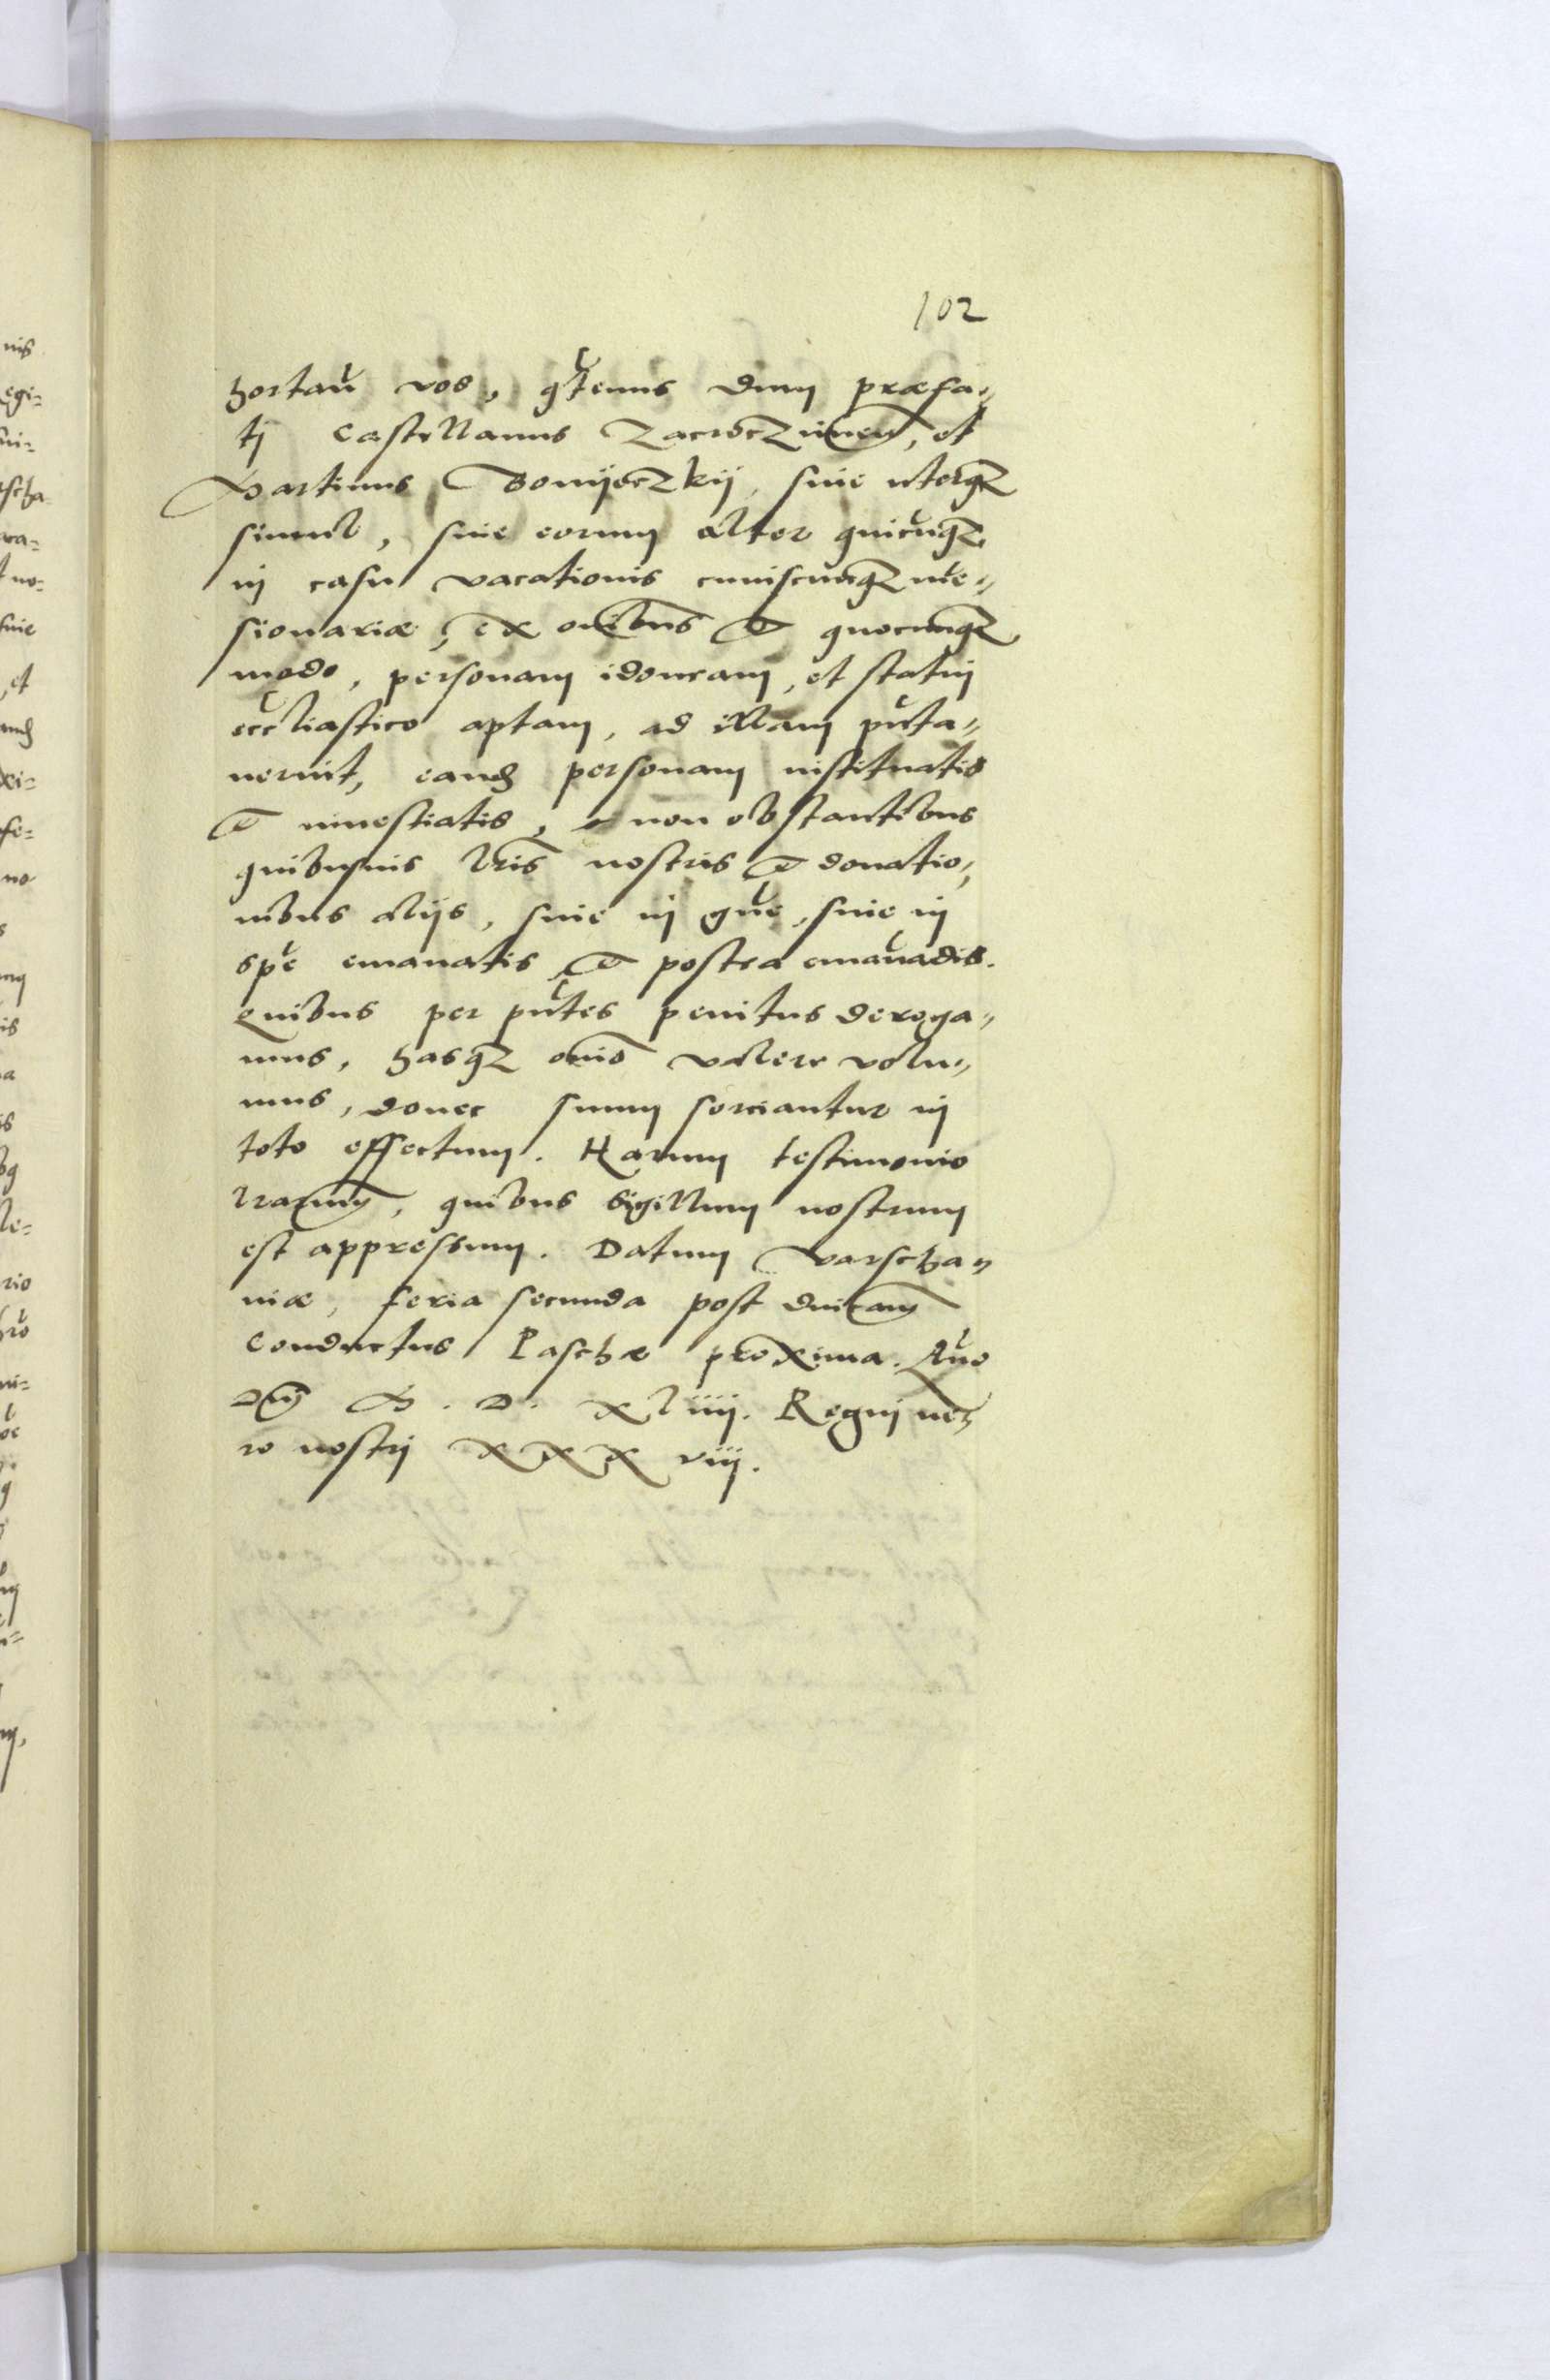 102
hortam̃ vos, q̃tenus dum præfa„
ti Castellanus Zacroczimeñ, et
Martinus Gomyeczkij, siue uterq3
simul, siue eorum alter quicũq3
in casu vacationis cuiuscunq3 mã„
sionariæ, ex oĩbus et quocunq3
modo, personam idoneam, et statui
eccl̃iastico aptam, ad illam pñta„
uerint, eand personam instituatis
et inuestiatis, non obstantibus
quibusuis l̃ris nostris et donatio„
nibus alijs, siue in gñe, siue in
spẽ emanatis et postea emanãdis.
Quibus per pñtes penitus deroga„
mus, hasq3 om̃o valere volu„
mus, donec suum sorciantur in
toto effectum. Harum testimonio
l̃rarum, quibus sigillum nostrum
est appressum. Datum Varscha„
uiæ, feria secunda post dnicam
Conductus Paschæ proxima. Año
Dnĩ M. D. xliiij. Regni ue„
ro nostri xxxviij.